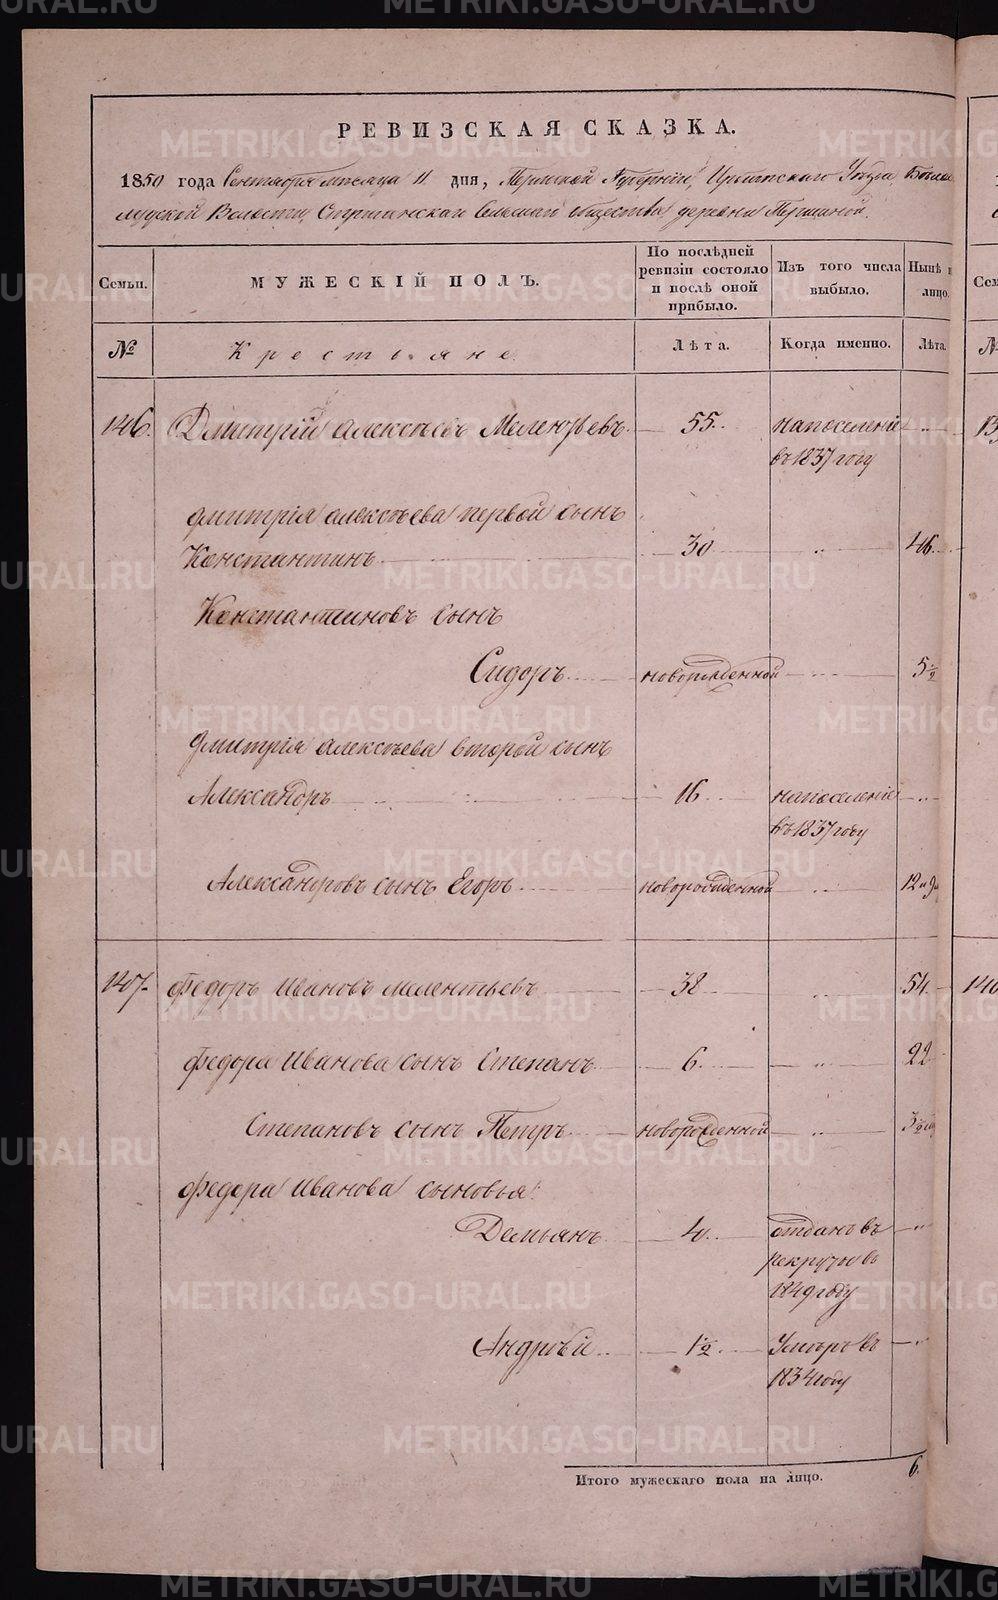 РЕВИЗСКАЯ СКАЗКА.
1850 года Сентября месяца 11 дня, Пермской Губерніи, Ирбитскаго Уезда,
Волости, Сельскаго общества деревни
Семьи.
МУЖЕСКІЙ ПОЛЪ.
По послѣдней ревизіи состояло и послѣ оной прибыло.
Изъ того числа выбыло.
Нынѣ на лицо.
№
Крестьяне
Лѣта.
Когда именно.
Лѣта
106. Дмитрій Алексѣевъ Мелентьевъ 55. на поселеніе
въ 1837 году
Дмитрія Алексѣева первой сынъ
Константинъ 30 " 46.
Константиновъ сынъ
Сидоръ новорожденной " 5 1/2
Дмитрія Алексѣева второй сынъ
Александръ 16 на поселеніе "
въ 1837 году
Александровъ сынъ Егоръ новорожденной " 12
107. Федоръ Ивановъ Мелентьевъ 38 " 54.
Федора Иванова сынъ Степанъ 6. " 22
Степановъ сынъ Петръ новорожденной " 3 1/2
Федора Иванова сыновья:
Демьянъ 4. отданъ въ "
рекруты въ
1849 году
Андрѣй 1 1/2 Умеръ въ "
1834 году
Итого мужескаго пола на лицо. 6.
METRIKI.GASO-URAL.RU